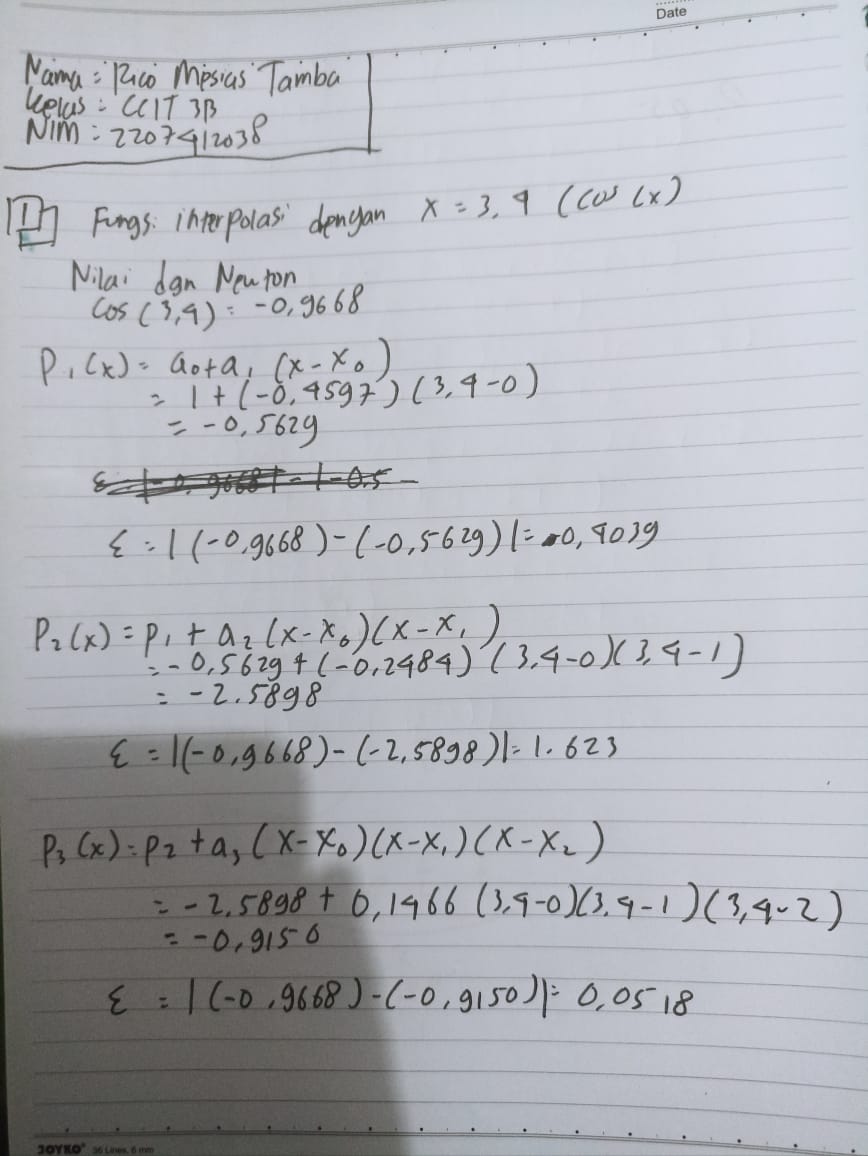 Date
Nama : Rico Mesias Tamba
Kelas : CCIT 3B
NIM : 2207412038
1 Fungsi interpolasi dengan x = 3,4 (cos (x)
Nilai dgn Newton
Cos (3,4) = -0,9668
P₁(x) = a₀+a₁ (x-x₀)
= 1 + (-0,4597) (3,4-0)
= -0,5629
ε = |(-0,9668)-(-0,5629)| = 0,4039
P₂(x) = P₁ + a₂ (x-x₀)(x-x₁)
= -0,5629 + (-0,2484) (3,4-0)(3,4-1)
= -2.5898
ε = |(-0,9668)-(-2,5898)| = 1.623
P₃(x) = P₂ + a₃ (x-x₀)(x-x₁)(x-x₂)
= -2,5898 + 0,1466 (3,4-0)(3,4-1)(3,4-2)
= -0,9150
ε = |(-0,9668)-(-0,9150)| = 0,0518
JOYKO 36 Lines, 6 mm